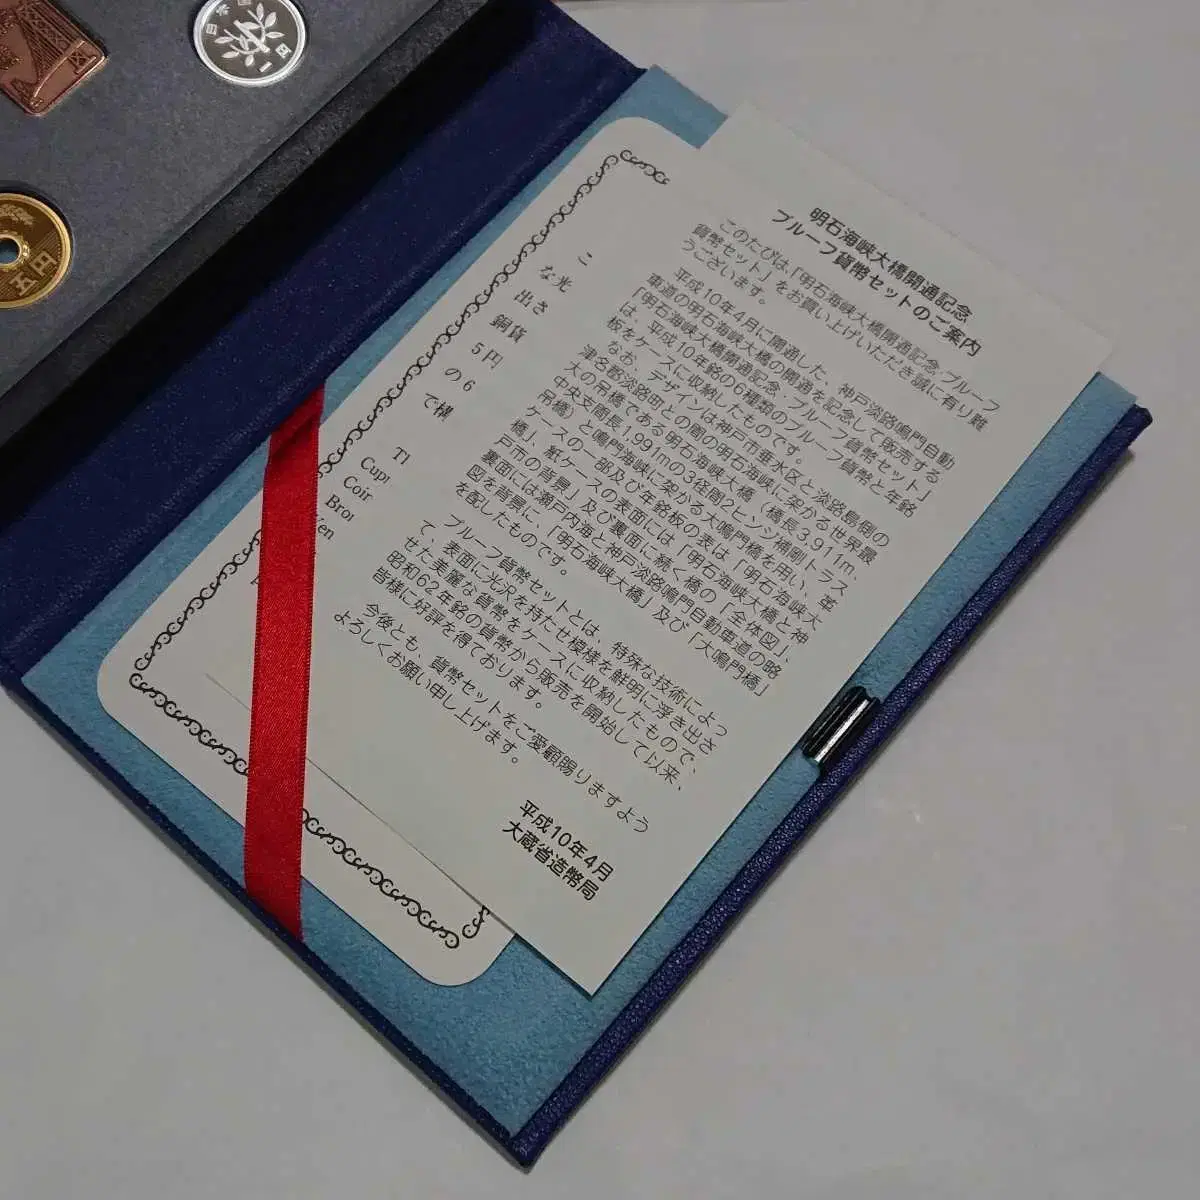 日本国
一
五円
こ
な光
出さ
銅貨
5円
の6
で構
Th
Cup
Coin
Bro
Yen
明石海峡大橋開通記念
プルーフ貨幣セットのご案内
このたびは「明石海峡大橋開通記念プルーフ
貨幣セット」をお買い上げいただき誠に有り難
うございます。
平成10年4月に開通した、神戸淡路鳴門自動
車道の明石海峡大橋の開通を記念して販売する
「明石海峡大橋開通記念プルーフ貨幣セット」
は、平成10年銘の6種類のプルーフ貨幣と年銘
板をケースに収納したものです。
なお、デザインは神戸市垂水区と淡路島側の
津名郡淡路町との間の明石海峡に架かる世界最
大の吊橋である明石海峡大橋（橋長3,911m、
中央支間長1,991mの3径間2ヒンジ補剛トラス
吊橋）と鳴門海峡に架かる大鳴門橋を用い、革
ケースの一部及び年銘板の表は「明石海峡大
橋」、紙ケースの表面には「明石海峡大橋と神
戸市の背景」及び裏面に続く橋の「全体図」、
裏面には瀬戸内海と神戸淡路鳴門自動車道の略
図を背景に、「明石海峡大橋」及び「大鳴門橋」
を配したものです。
プルーフ貨幣セットとは、特殊な技術によっ
て、表面に光沢を持たせ模様を鮮明に浮き出さ
せた美麗な貨幣をケースに収納したもので、
昭和62年銘の貨幣から販売を開始して以来、
皆様に好評を得ております。
今後とも、貨幣セットをご愛顧賜りますよう
よろしくお願い申し上げます。
平成10年4月
大蔵省造幣局